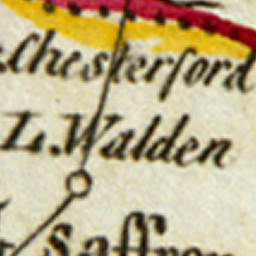 .Chesterford
L.Walden
Saffron